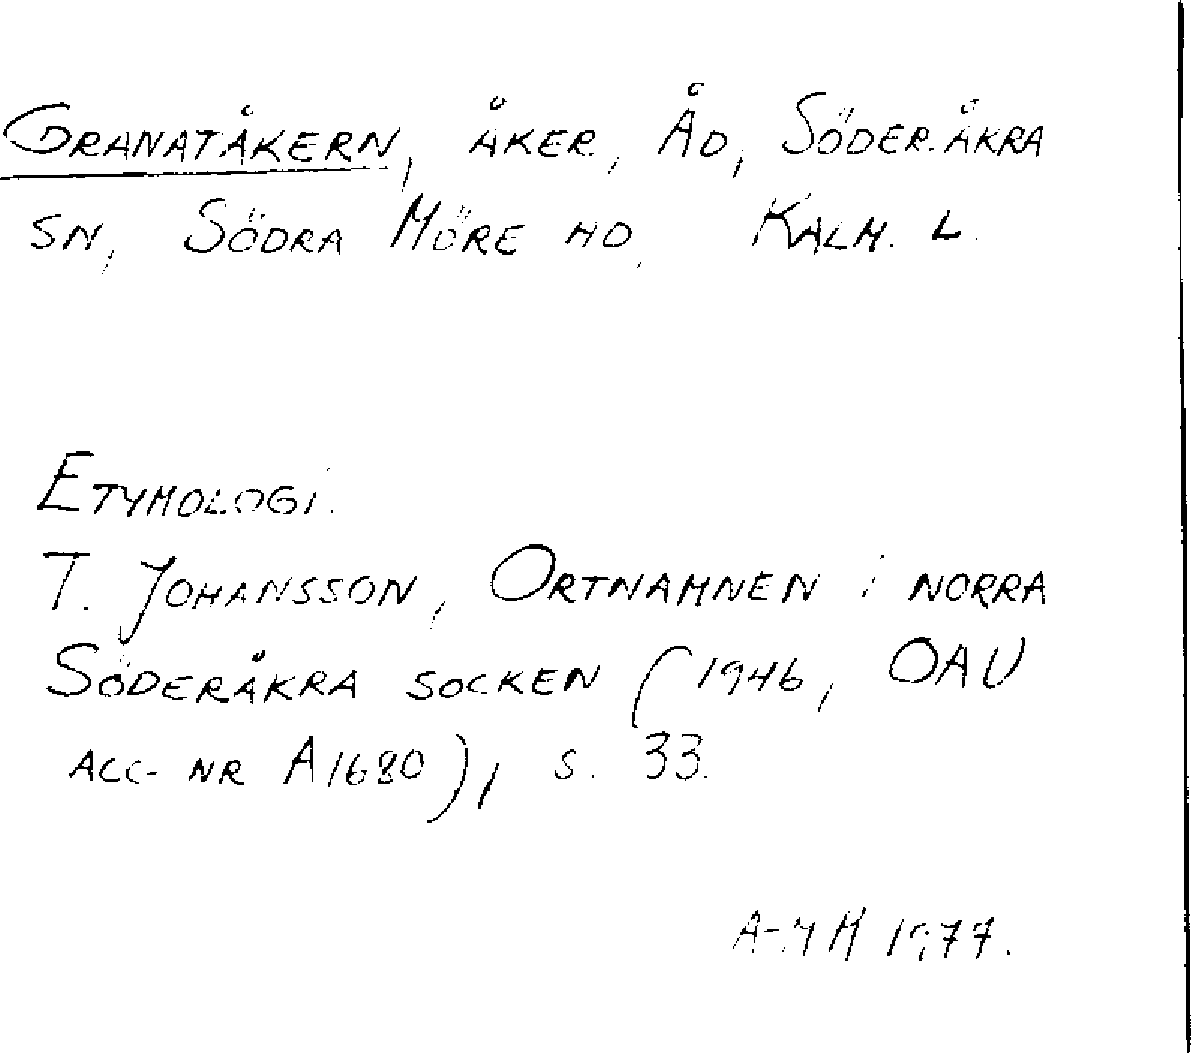 GRANATÅKERN, ÅKER, ÅD, SÖDERÅKRA
SN, SÖDRA MÖRE HD, KALM. L.
ETYMOLOGI.
T. JOHANSSON, ORTNAMNEN i NORRA
SÖDERÅKRA SOCKEN (1946, OAU
ACC-NR A1680), S. 33.
A-MH 1977.